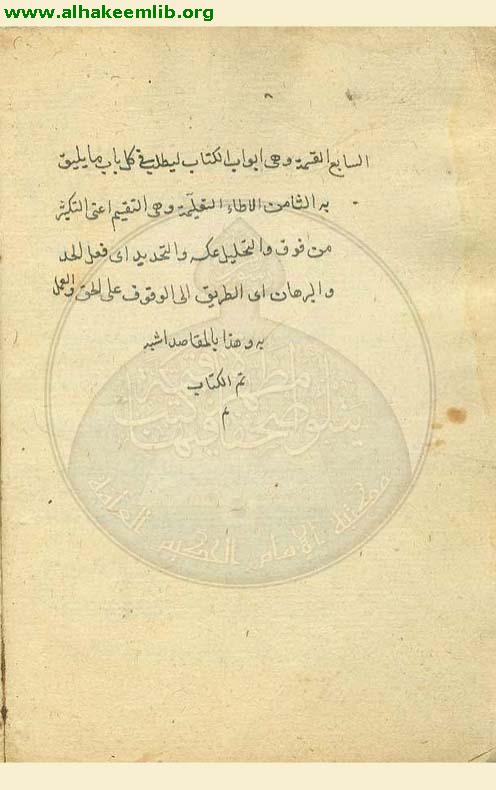 www.alhakeemlib.org
٨
السابع القسمة وهى ابواب الكتاب ليطلب فى كل باب ما يليق
به الثامن الانحاء التعليمية وهى التقسيم اعنى التكثير
من فوق والتحليل عكسه والتحديد اى فعل الحد
والبرهان اى الطريق الى الوقوف على الحق والعمل
به وهذا بالمقاصد اشبه
تم الكتاب
م
مكتبة الامام الحكيم العامة